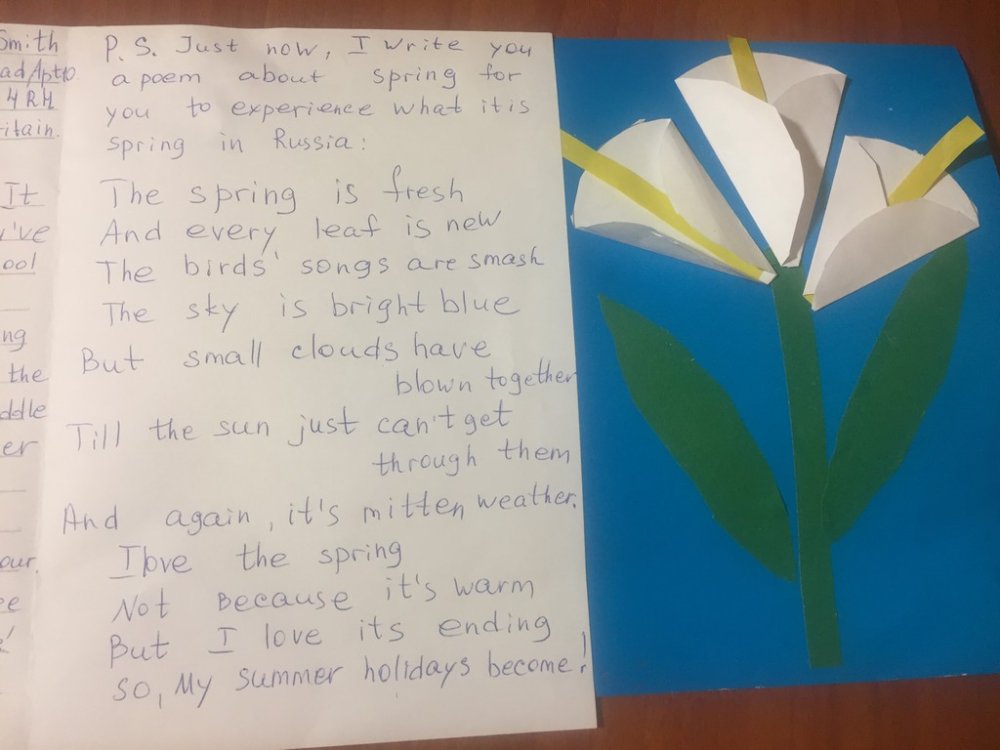 Smith
ad, Apt 10
4 RH
ritain.
It
I've
ool
ng
the
ddle
er
our
ee
P.S. Just now, I write you
a poem about spring for
you to experience what it is
spring in Russia:
The spring is fresh
And every leaf is new
The birds' songs are smash
The sky is bright blue
But small clouds have
blown together
Till the sun just can't get
through them
And again, it's mitten weather.
I love the spring
Not because it's warm
But I love its ending
so, My summer holidays become!